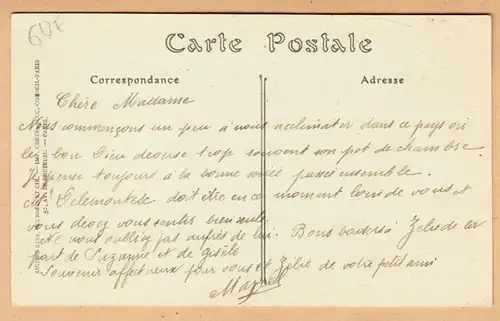 607
Carte Postale
Correspondance
Adresse
Chère Madame
Nous commençons un peu à nous acclimater dans ce pays où
le bon Dieu déverse trop souvent son pot de chambre
Je pense toujours à la bonne soirée passée ensemble.
doit être en ce moment loin de vous et
vous devez vous sentir bien seule
Ne nous oubliez pas auprès de lui. Bons baisers à Zélie de la
part de Suzanne et de Gisèle
Souvenir affectueux pour vous et Zélie de votre petit ami